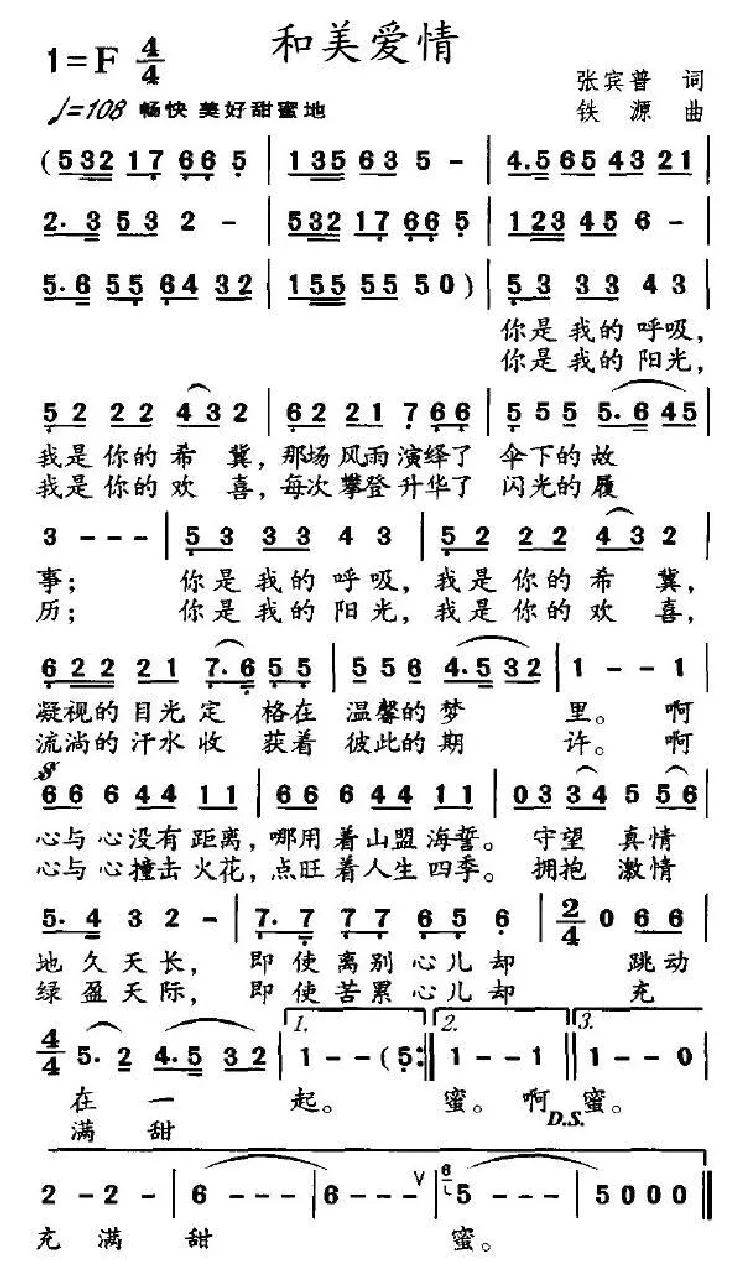 和美爱情
1=F 4/4
张宾普 词
♩=108 畅快 美好甜蜜地
铁源 曲
(532 17 66 5 | 135 63 5 - | 4.5 65 43 21 |
2. 3 53 2 - | 532 17 66 5 | 123 45 6 - |
5. 6 55 64 32 | 155 55 50) | 53 33 43
你是我的呼吸,
你是我的阳光,
52 22 43 2 | 62 21 7 66 | 5 55 5. 645
我是你的希冀,那场风雨演绎了 伞下的故
我是你的欢喜,每次攀登升华了 闪光的履
3 - - - | 53 33 43 | 52 22 43 2
事; 你是我的呼吸,我是你的希冀,
历; 你是我的阳光,我是你的欢喜,
622 21 7.6 55 | 556 4.5 32 | 1 - - 1
凝视的目光定 格在 温馨的梦 里。 啊
流淌的汗水收 获着 彼此的期 许。 啊
66 6 44 11 | 66 6 44 11 | 033 4 5 56
心与心没有距离,哪用着山盟海誓。 守望 真情
心与心撞击火花,点旺着人生四季。 拥抱 激情
5. 4 3 2 - | 7. 7 77 65 6 | 2/4 0 66
地久天长, 即使离别心儿却 跳动
绿盈天际, 即使苦累心儿却 充
1. 2. 3.
4/4 5. 2 4.5 32 | 1 - - (5 :‖ 1 - - 1 ‖ 1 - - 0
在一 起。 蜜。 啊 蜜。
满甜 D.S.
2 - 2 - | 6 - - - | 6 - - - V | 6 5 - - - | 5 0 0 0 ‖
充 满 甜 蜜。